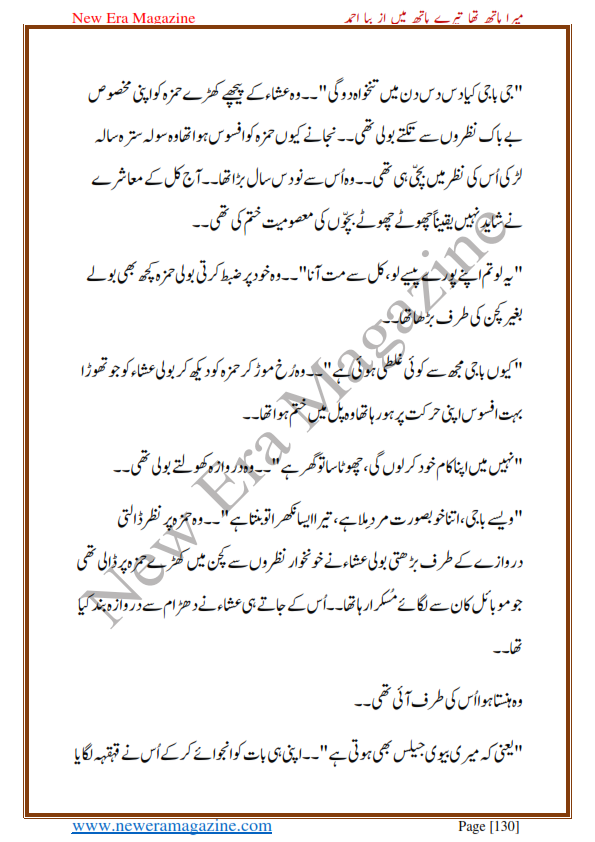 New Era Magazine میرا ہاتھ تھا تیرے ہاتھ میں از ببا احمد
"جی باجی کیا دس دس دن میں تنخواہ دو گی"۔۔وہ عشاء کے پیچھے کھڑے حمزہ کو اپنی مخصوص
بے باک نظروں سے تکتے بولی تھی۔۔نجانے کیوں حمزہ کو افسوس ہوا تھا وہ سولہ سترہ سالہ
لڑکی اُس کی نظر میں بچّی ہی تھی۔۔وہ اُس سے نو دس سال بڑا تھا۔۔آج کل کے معاشرے
نے شاید نہیں یقیناً چھوٹے چھوٹے بچّوں کی معصومیت ختم کی تھی۔۔
"یہ لو تم اپنے پورے پیسے لو، کل سے مت آنا"۔۔وہ خود پر ضبط کرتی بولی حمزہ کچھ بھی بولے
بغیر کچن کی طرف بڑھا تھا۔۔
"کیوں باجی مجھ سے کوئی غلطی ہوئی ہے"۔۔وہ رُخ موڑ کر حمزہ کو دیکھ کر بولی عشاء کو جو تھوڑا
بہت افسوس اپنی حرکت پر ہو رہا تھا وہ پل میں ختم ہوا تھا۔۔
"نہیں میں اپنا کام خود کر لوں گی، چھوٹا سا تو گھر ہے"۔۔وہ دروازہ کھولتے بولی تھی۔۔
"ویسے باجی، اتنا خوبصورت مرد مِلا ہے، تیرا ایسا نکھرا تو بنتا ہے"۔۔وہ حمزہ پر نظر ڈالتی
دروازے کے طرف بڑھتی بولی عشاء نے خونخوار نظروں سے کچن میں کھڑے حمزہ پر ڈالی تھی
جو موبائل کان سے لگائے مُسکرا رہا تھا۔۔اُس کے جاتے ہی عشاء نے دھڑام سے دروازہ بند کیا
تھا۔۔
وہ ہنستا ہوا اُس کی طرف آئی تھی۔۔
"یعنی کہ میری بیوی جیلس بھی ہوتی ہے"۔۔اپنی ہی بات کو انجوائے کر کے اُس نے قہقہہ لگایا
New Era Magazine
www.neweramagazine.com Page [130]